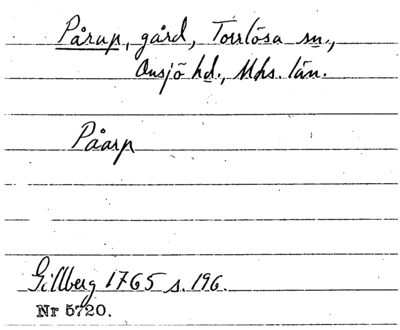 Pårup, gård, Torrlösa sn.,
Onsjö hd., Mhs. län.
Påarp
Gillberg 1765 s. 196.
Nr 5720.